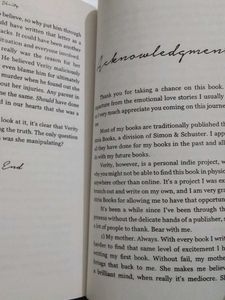 Verity
believe, so why put him through
could have written that letter as a
acks. It could have been another
situation and everyone involved.
really was the reason for his
He believed Verity maliciously
even blame him for ultimately
murder when he found out she
bout her injuries. Any parent in
the same. Should have done
d in our hearts that she was a
look at it, it's clear that Verity
ng the truth. The only question
was she manipulating?
End
Acknowledgments
Thank you for taking a chance on this book.
parture from the emotional love stories I usually
very much appreciate you coming on this journey
Most of my books are traditionally published th
Books, a division of Simon & Schuster. I app
they have done for my books in the past and al
with my future books.
Verity, however, is a personal indie project, wh
you might not be able to find this book in physic
anywhere other than online. It's a project I wan
out and write on my own, and I am very gra
Books for allowing me to have that opportunity
It's been a while since I've been through the
without the delicate hands of a publisher,
a lot of people to thank. Bear with me.
My mother. Always. With every book I write
harder to find that same level of excitement I h
writing my first book. Without fail, my mother
that back to me. She makes me believe
brilliant mind, when really it's mediocre. S